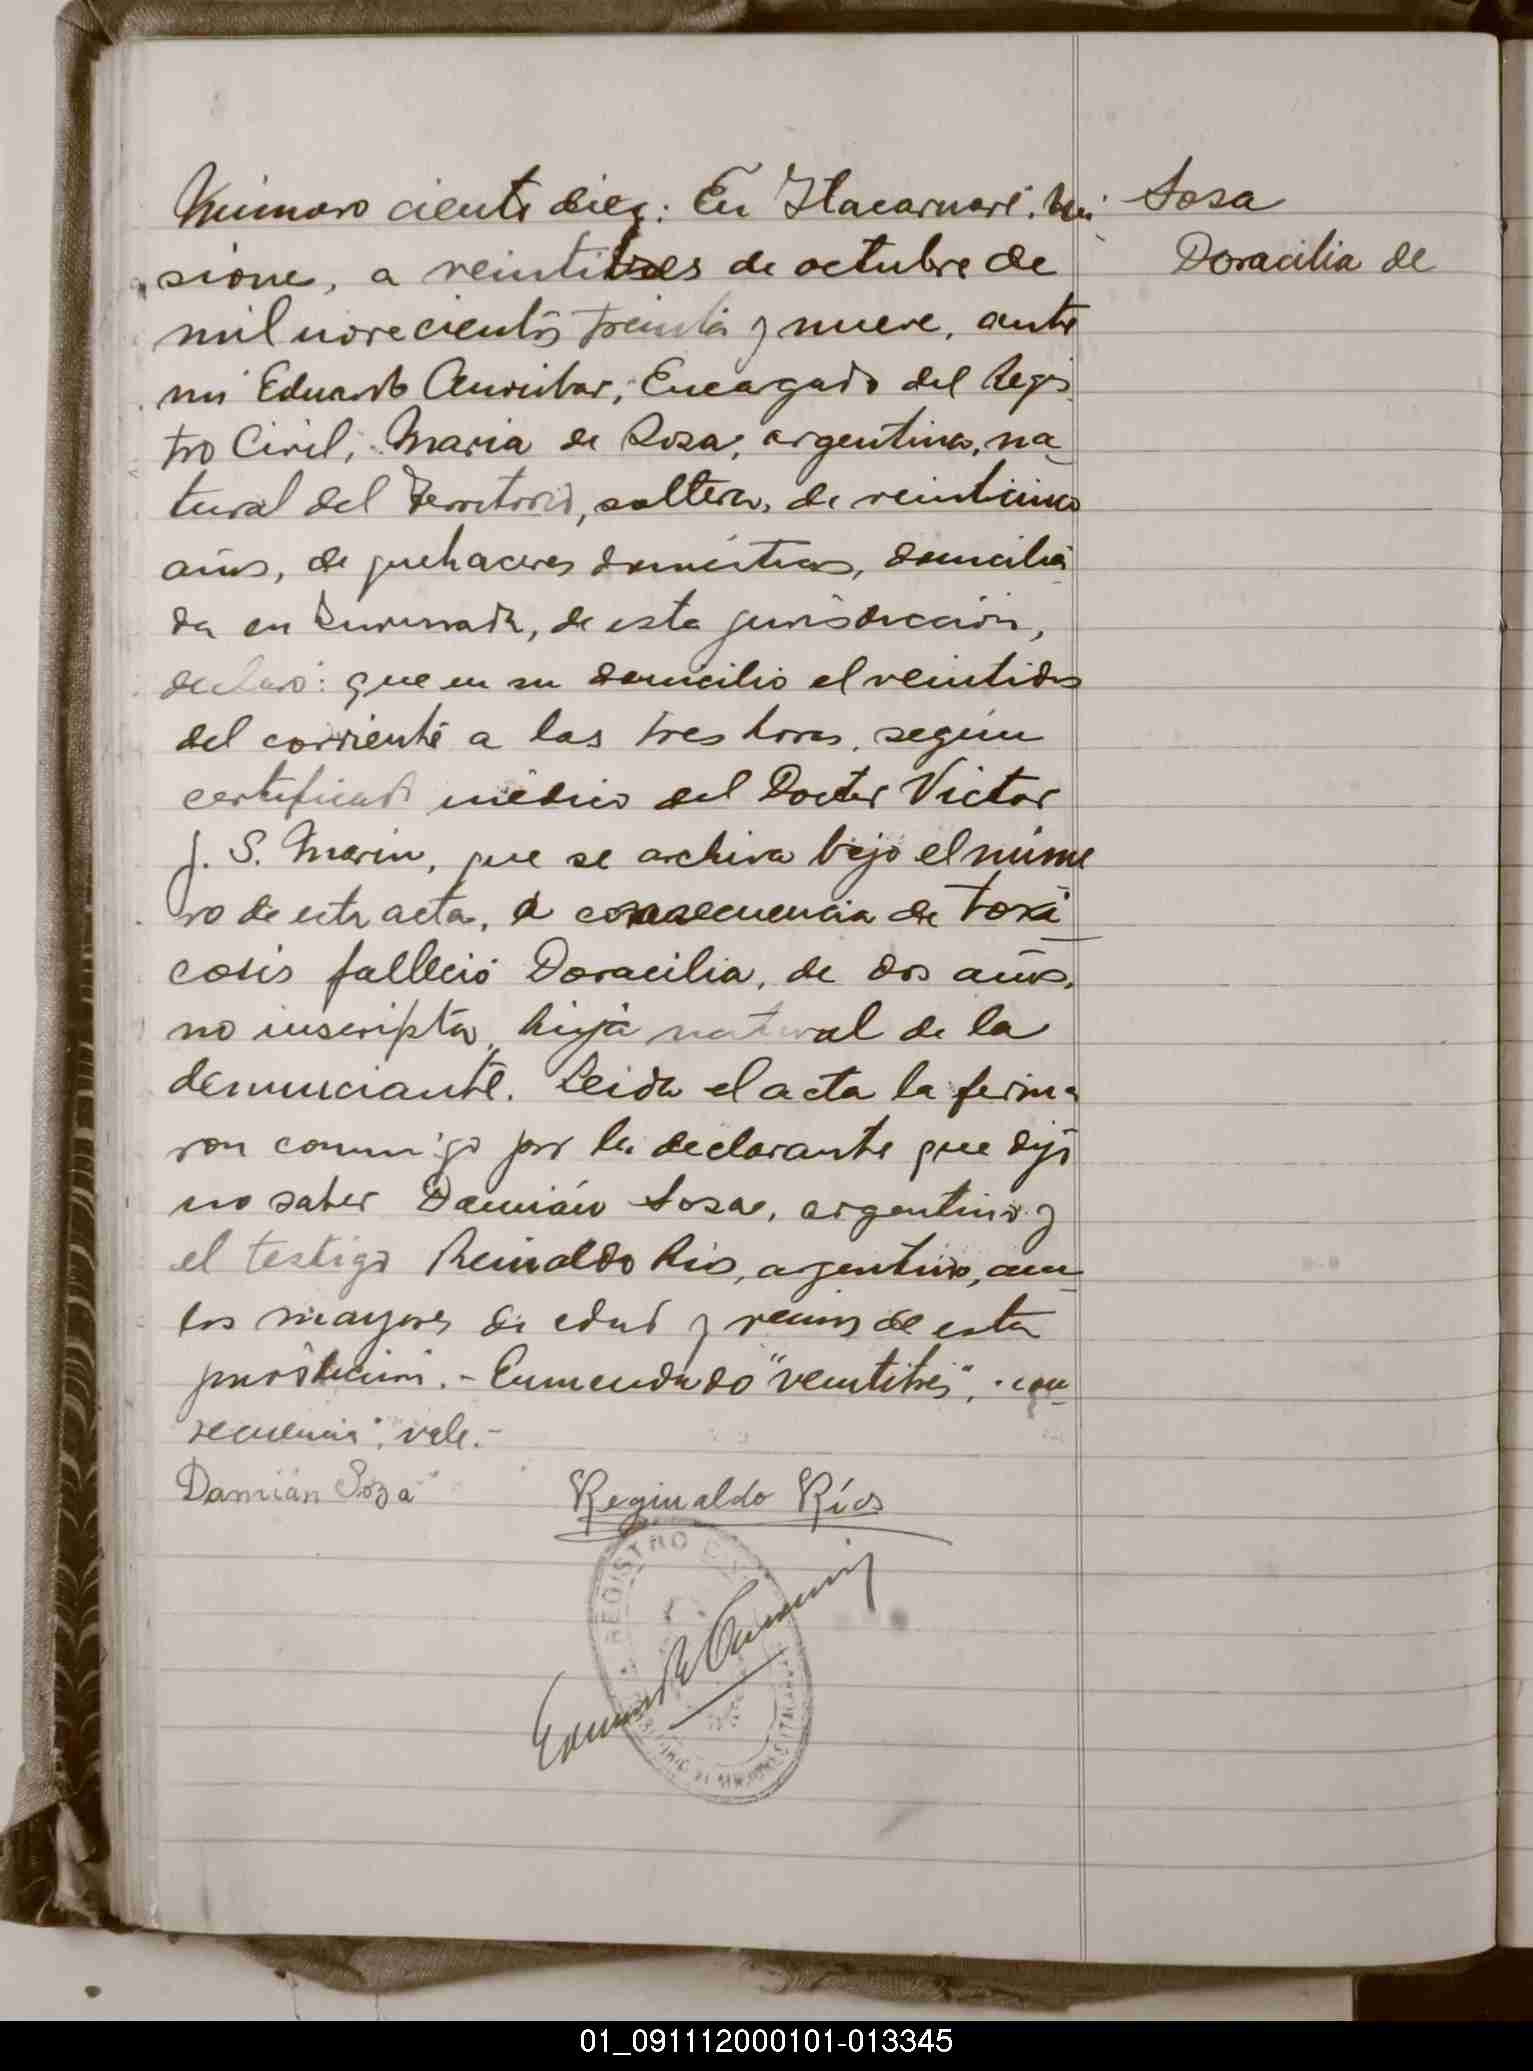 Número ciento diez: En Itacaruaré, Mi
siones, a veintitres de octubre de
mil novecientos treinta y nueve, ante
mi Eduardo, Encargado del Regis
tro Civil, Maria de Sosa, argentina, na
tural del Territorio, soltera, de veinticinco
años, de quehaceres domésticos, domicilia
da en, de esta jurisdicción,
declaró: que en su domicilio el veintidos
del corriente a las tres horas, según
certificado médico del Doctor Victor
J. S. Marin, que se archiva bajo el núme
ro de esta acta, a consecuencia de toxi
cosis falleció Doracilia, de dos años,
no inscripta, hija natural de la
denunciante. Leida el acta la firma
ron conmigo por la declarante que dijo
no saber Damián Sosa, argentino y
el testigo Reinaldo Rios, argentino, am
bos mayores de edad y vecinos de esta
jurisdicción.- Enmendado "veintitres", "con
secuencia": vale.-
Sosa
Doracilia de
Damián Sosa
Reginaldo Ríos
REGISTRO CIVIL
01_091112000101-013345